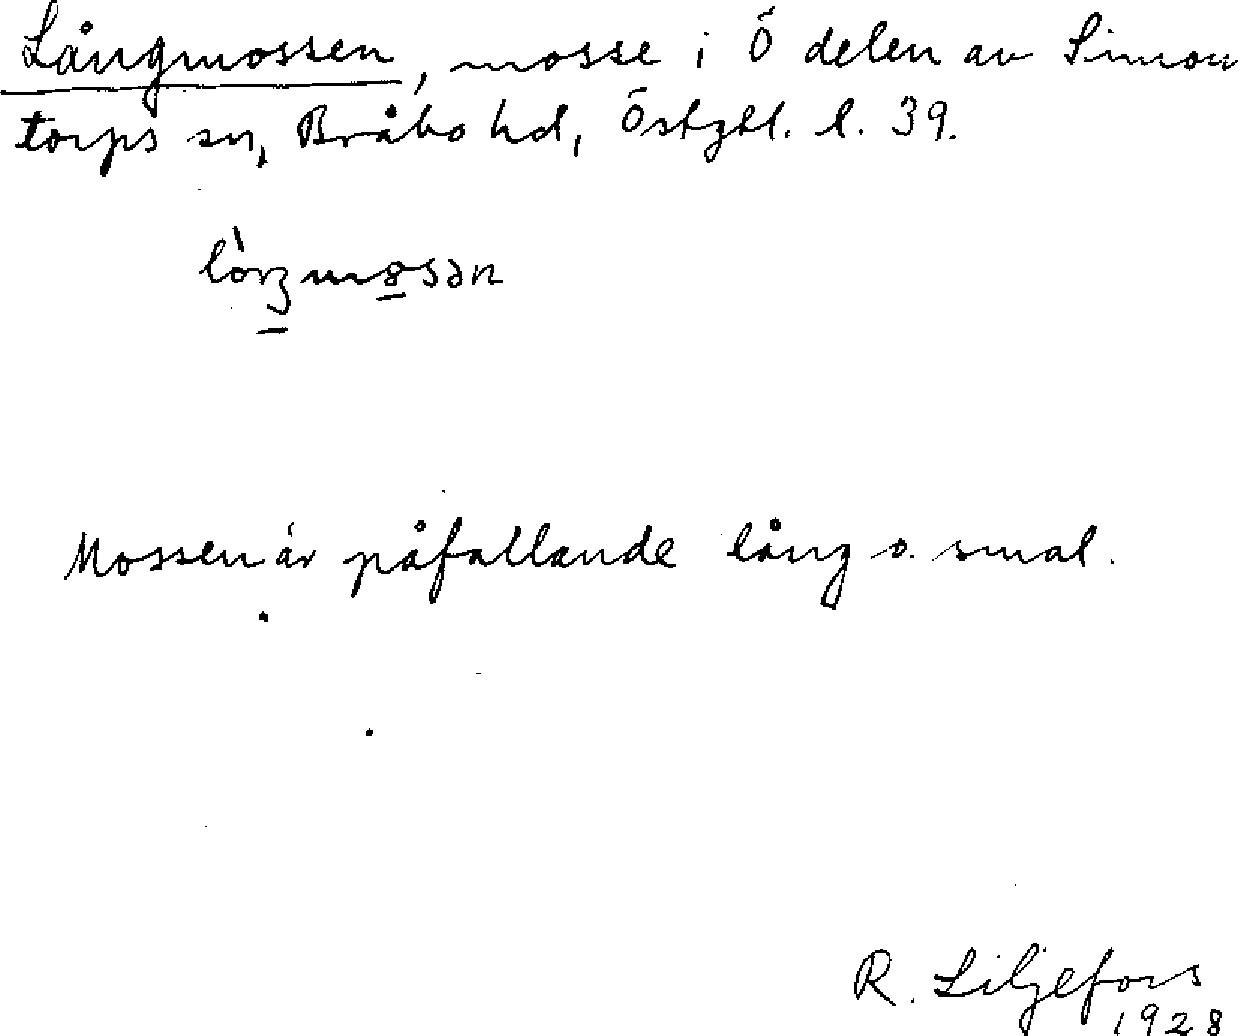 Långmossen, mosse i Ö delen av Simon
torps sn, Bråbo hd, Östgtl. l. 39.
Mossen är påfallande lång o. smal.
R. Liljefors
1928